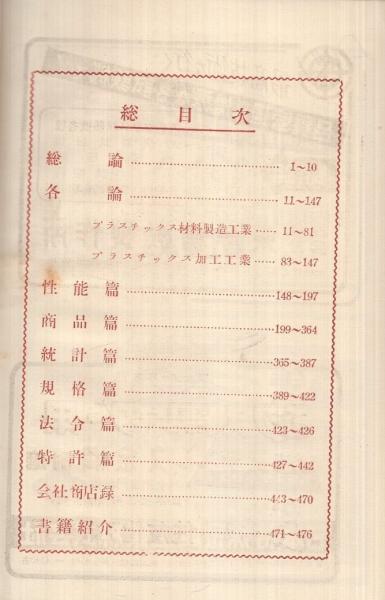 総目次
総論 1〜10
各論 11〜147
プラスチックス材料製造工業 11〜81
プラスチックス加工工業 83〜147
性能篇 148〜197
商品篇 199〜364
統計篇 365〜387
規格篇 389〜422
法令篇 423〜426
特許篇 427〜442
会社商店録 443〜470
書籍紹介 471〜476